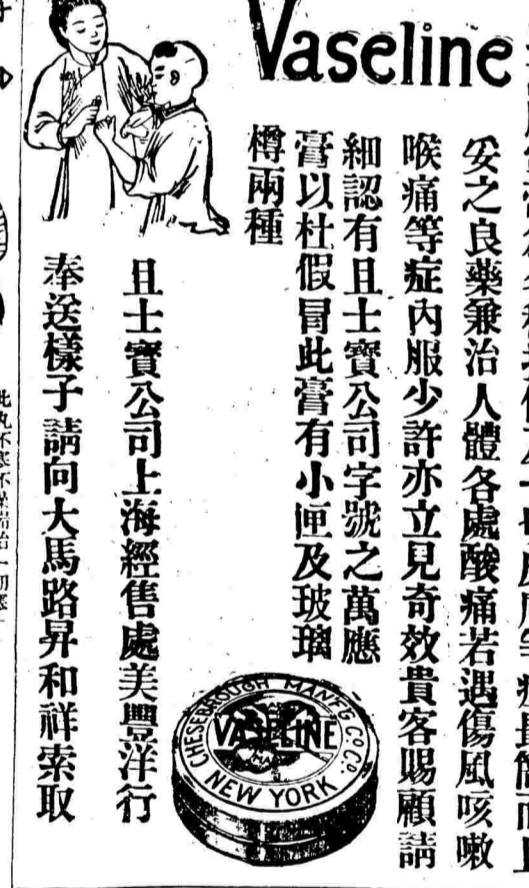 Vaseline
妥之良藥兼治人體各處酸痛若遇傷風咳嗽
喉痛等症內服少許亦立見奇效貴客賜顧請
細認有且士寶公司字號之萬應
膏以杜假冒此膏有小匣及玻璃
樽兩種
且士寶公司上海經售處美豐洋行
奉送樣子請向大馬路昇和祥索取
CHESEBROUGH MANF'G CO. CD.
VASELINE
NEW YORK